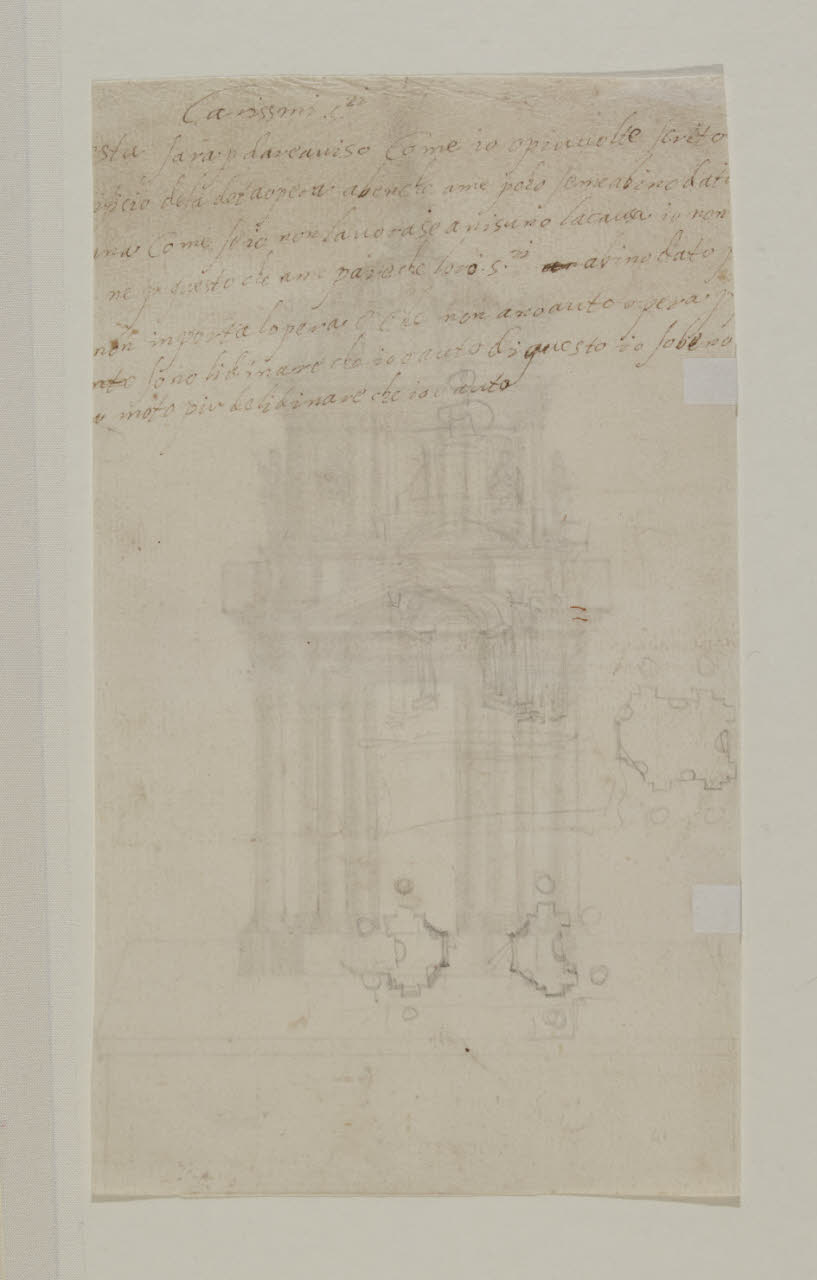 Carissmi. S.ri
esta sara p dare aviso Come io o piu volte scrito
oficio dela deta opera abenche ame poco se me abino dati
una Come se io non lavorase a nisuno la causa io non
ne p questo che a me pare che loro. S.ri abino dato p
non inporta lopera e che non ano auto opera p
nte sono li dinare che io o auto di questo io so beno
moto piu deli dinare che io o auto